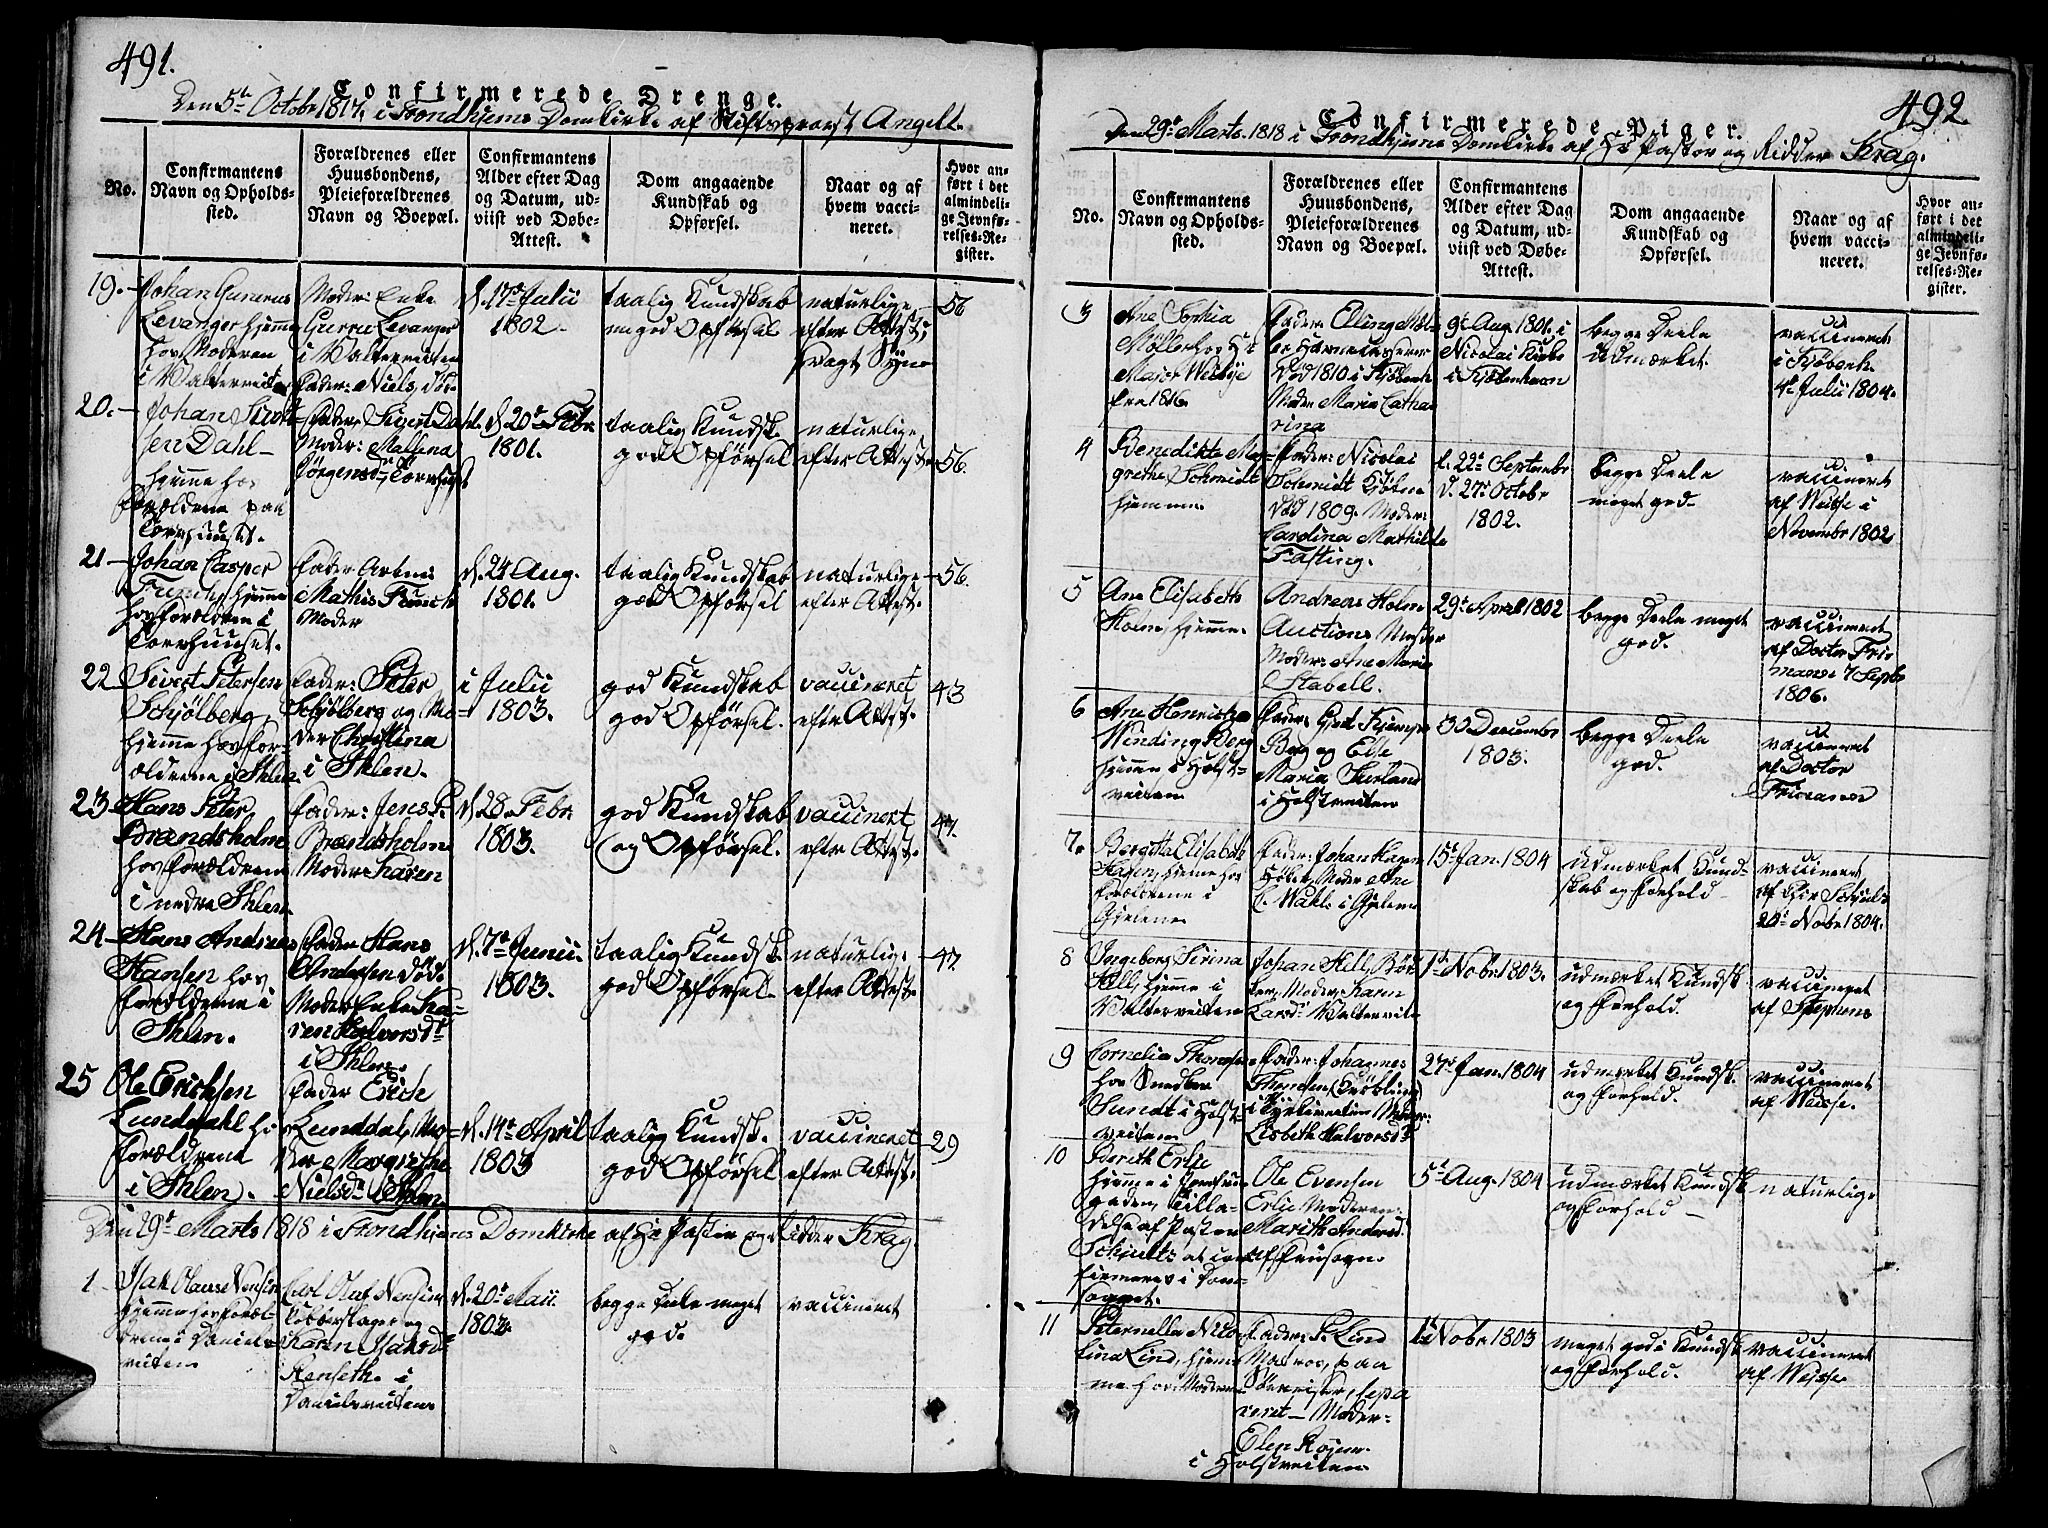 491.
Confirmerede Drenge.
Den 5te Octobr 1817. i Trondhjems Domkirke af Stiftsprovst Angell.
No.
Confirmantens
Navn og Opholds-
sted.
Forældrenes eller
Huusbondens,
Pleieforældrenes
Navn og Boepæl.
Confirmantens
Alder efter Dag
og Datum, ud-
viist ved Døbe-
Attest.
Dom angaaende
Kundskab og
Opførsel.
Naar og af
hvem vacci-
neret.
Hvor an-
ført i det
almindeli-
ge Jevnfø-
relses-Re-
gister.
19.
Johan Gunerus
Levanger hjemme
hos Moderen
i Walterveiten
Moder: Enke
Gurru Levanger
i Walterveiten
Fader: Niels død
d. 17de Julii
1802
taalig Kundskab
god Opførsel
naturlige
efter Attest
56
20.
Johan Siverts-
sen Dahl
hjemme hos
Forældrene paa
Fader: Sivert Dahl
Moder: Malena
Jørgensdr
d. 20de Febr
1801.
taalig Kundsk.
god Opførsel
naturlige
efter Attest
56.
21
Johan Casper
Funch, hjemme
hos forældrene i
Fader: Arbm:
Mathis Funch
Moder
d. 24 Aug.
1801.
taalig Kundskab
god Opførsel
naturlige
efter Attest
56.
22
Sivert Petersen
Schjølberg
hjemme hos for-
ældrene i Ihlen
Fader: Peter
Schjølberg og Mo-
der Christina
i Ihlen.
i Julii
1803.
god Kundskab
god Opførsel
vaccineret
efter Attest
43
23
Hans Peter
Brandsholm
hos Forældrene
i nedre Ihlen
Fader: Jens P.
Brandsholm
Moder: Karen
d. 28 Febr
1803.
god Kundskab
og Opførsel.
vaccineret
efter Attest
47.
24
Hans Andreas
Hansen hos
Forældrene i
Ihlen.
Fader Hans
Andersen død.
Moder Enke Ka-
ren Halvorsdr
i Ihlen.
d. 7de Junii.
1803.
taalig Kundsk.
god Opførsel
naturlig
efter Attest
47.
25
Ole Erichsen
Lunddahl hos
Forældrene
i Ihlen.
Fader Erich
Lunddal, Mo-
der Margrethe
Nielsdr i Ihlen
d. 14de April
1803
taalig Kundsk.
god Opførsel
vaccineret
efter Attest
29
Den 29de Marts 1818 i Trondhjems Domkirke af Hr Pastor og Ridder Krag.
1
Isak Olaus Nensin
hjemme hos Foræl-
drene i Daniels-
veiten
Carl Olut Nensin
Kobberslager og
Karen Isaksdr
Renseth i
Danielsveiten
d. 20de Maii
1802.
begge Dele meget
god.
vaccineret
492.
Confirmerede Piger.
Den 29de Marts 1818 i Trondhjems Domkirke af Hr Pastor og Ridder Krag.
No.
Confirmantens
Navn og Opholds-
sted.
Forældrenes eller
Huusbondens,
Pleieforældrenes
Navn og Boepæl.
Confirmantens
Alder efter Dag
og Datum, ud-
viist ved Døbe-
Attest.
Dom angaaende
Kundskab og
Opførsel.
Naar og af
hvem vacci-
neret.
Hvor an-
ført i det
almindeli-
ge Jevnfø-
relses-Re-
gister.
3
Ane Sophia
Møller hos Hr
Major Weibye
fra 1816.
Fader: Elling Møl-
ler
død 1810 i Kjøbenh.
Moder Maria Catha-
rina
9de Aug. 1801. i
Nicolai Kirke
i Kjøbenhavn
begge Deele
udmærket.
vaccineret
i Kjøbenh.
4de Julii 1804.
4
Benedikte Ma-
grethe Schmidt
hjemme
Fader: Nicolai
Schmidt Kjøbm.
død 1809. Moder:
Carolina Mathilde
Fasting.
f. 22de Septembr
d. 27de Octobr
1802.
begge Deele
meget god.
vaccineret
af Weisse i
Novembr 1802
5
Ane Elisabeth
Holm, hjemme.
Andreas Holm
Auctions Mester
Moder: Ane Maria
Stabell.
29de April 1802
begge Deele meget
god.
vaccineret
af Doctor Fris-
mann 7 Septbr
1806.
6
Ane Henricha
Winding Berg
hjemme i Holst-
veiten
Berg og Else
Maria
i Holstveiten
30 Decembr
1803.
begge Deele
god.
vaccineret
af Doctor
7.
Bergitta Elisabeth
Hagen, hjemme hos
Forældrene i
Fader: Johan Hagen
Moder Ane
C. Wahl
15de Jan. 1804
udmærket Kund-
skab og Forhold
vaccineret
20de Nobr 1804.
8
Ingeborg Sirina
Hill, hjemme i
Walterveiten
Johan Hill, Bød-
ker, Moder, Karen
Larsdr Walterveiten
1ste Nobr 1803.
udmærket Kundsk.
og Forhold.
vaccineret
af Stephens
9
Cornelia Thomsen
hos Snedker
Sundt i Holst-
veiten
Fader: Johannes
Thomsen
Moder:
Lisbeth Halvorsdr
27de Jan. 1804
udmærket Kundsk.
og Forhold.
vaccineret
af Weisse.
10
Berith Erlie
hjemme i
gaden, Tilla-
delse af Pastor
Schjults at con-
firmeres i Dom-
sognet.
Ole Evensen
Erlie Moderen
Marith Andersd.
af Fruesogn
5te Aug. 1804
udmærket Kundsk
og Forhold
naturlige
11
Peternella Nico-
lina Lind, hjem-
me hos Moderen
Fader: P. Lind
Matros, paa
Moder:
Elen
i Holstveiten
1ste Nobr 1803
meget god i Kundsk
og Forhold.
vaccineret
af Weisse